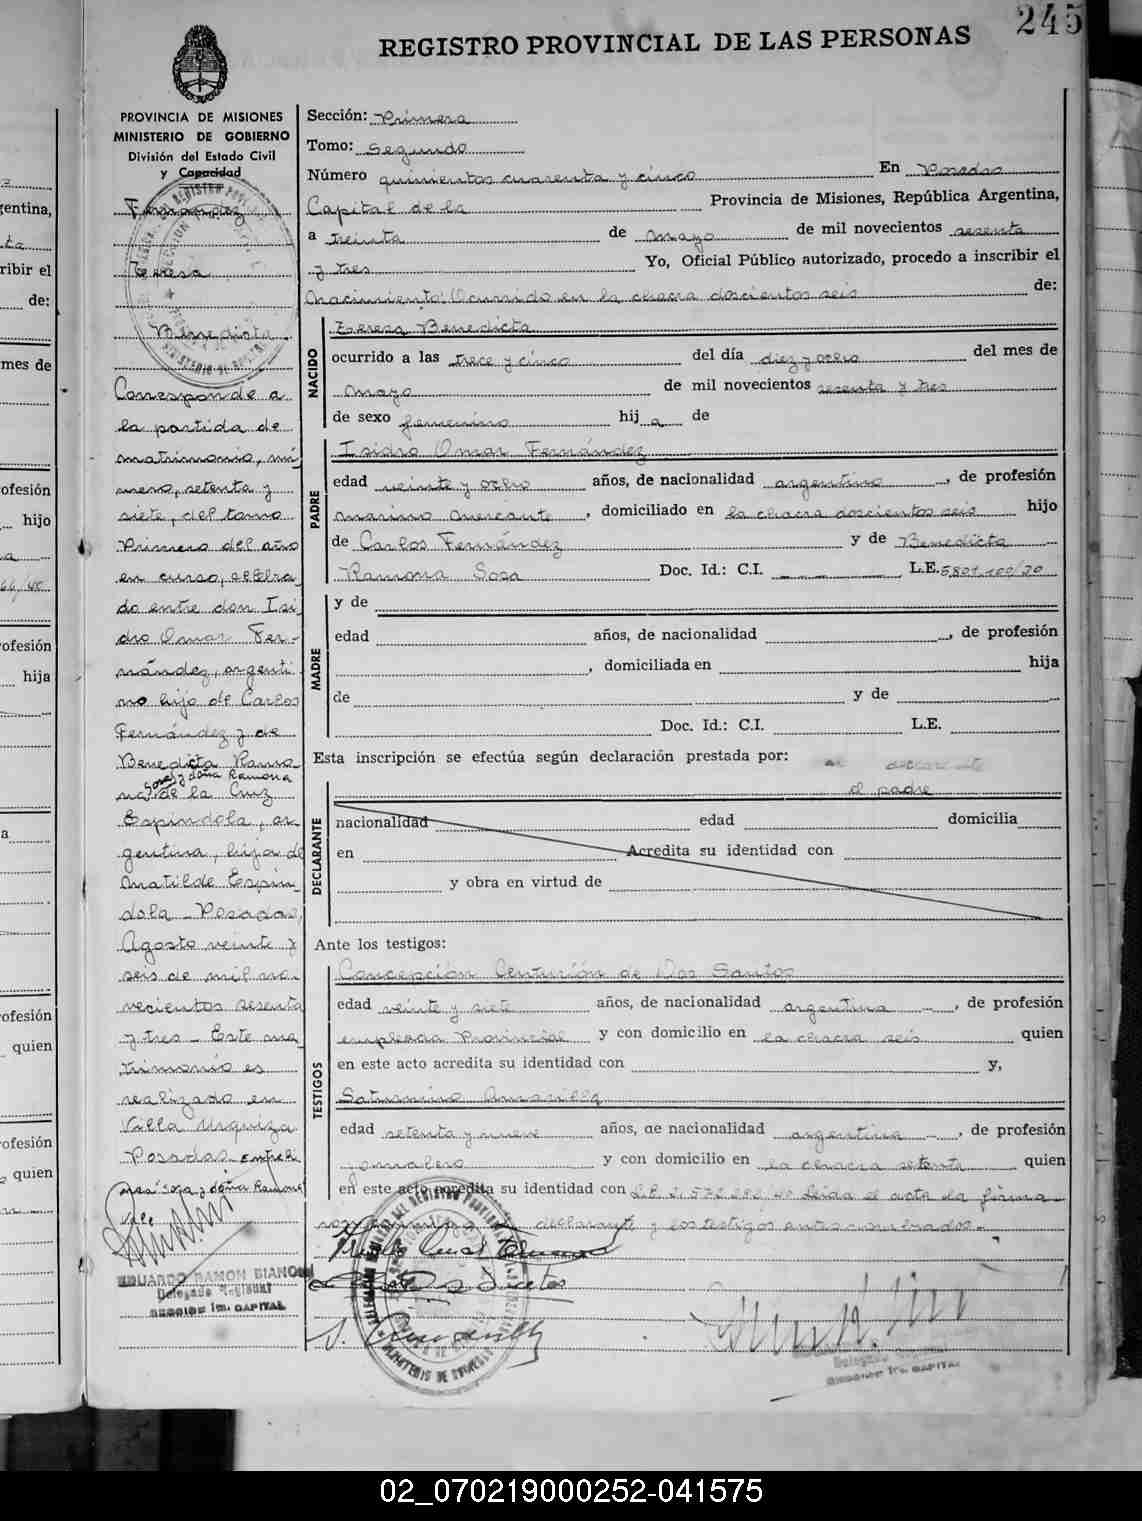 245
REGISTRO PROVINCIAL DE LAS PERSONAS
PROVINCIA DE MISIONES
MINISTERIO DE GOBIERNO
División del Estado Civil
y Capacidad
Fernandez
Teresa
Benedicta
Corresponde a
la partida de
matrimonio, nú
mero, setenta y
siete, del tomo
Primero del año
en curso, celebra
do entre don Isi
dro Omar Fer-
nández, argenti
no hijo de Carlos
Fernández y de
Benedicta Ramo
Sosa y doña Ramona
na de la Cruz
Espíndola, ar
gentina, hija de
Matilde Espín
dola - Posadas,
Agosto veinte y
seis de mil no-
vecientos sesenta
y tres - Este ma
trimonio es
realizado en
Villa Urquiza
Posadas Entreli
nea: Sosa y doña Ramona
Vale
EDUARDO RAMON BIANCHI
Delegado Regional
SECCION 1ra. CAPITAL
Sección: Primera
Tomo: Segundo
Número quinientos cuarenta y cinco En Posadas
Capital de la Provincia de Misiones, República Argentina,
a treinta de mayo de mil novecientos sesenta
y tres Yo, Oficial Público autorizado, procedo a inscribir el
Nacimiento: Ocurrido en la chacra doscientos seis de:
NACIDO
Teresa Benedicta
ocurrido a las trece y cinco del día diez y ocho del mes de
mayo de mil novecientos sesenta y tres
de sexo femenino hij a de
PADRE
Isidro Omar Fernández
edad veinte y ocho años, de nacionalidad argentino, de profesión
marino mercante, domiciliado en la chacra doscientos seis hijo
de Carlos Fernández y de Benedicta
Ramona Sosa Doc. Id.: C.I. L.E.
MADRE
y de
edad años, de nacionalidad , de profesión
, domiciliada en hija
de y de
Doc. Id.: C.I. L.E.
Esta inscripción se efectúa según declaración prestada por:
el padre
DECLARANTE
nacionalidad edad domicilia
en Acredita su identidad con
y obra en virtud de
Ante los testigos:
TESTIGOS
Concepción Centurión de Dos Santos
edad veinte y siete años, de nacionalidad argentina, de profesión
empleada Provincial y con domicilio en la chacra seis quien
en este acto acredita su identidad con y,
Saturnino Amarilla
edad setenta y nueve años, de nacionalidad argentina, de profesión
jornalero y con domicilio en la chacra setenta quien
en este acto acredita su identidad con Leída el acta la firma
declarante y los testigos antes nombrados.-
SECCION 1ra. CAPITAL
02_070219000252-041575